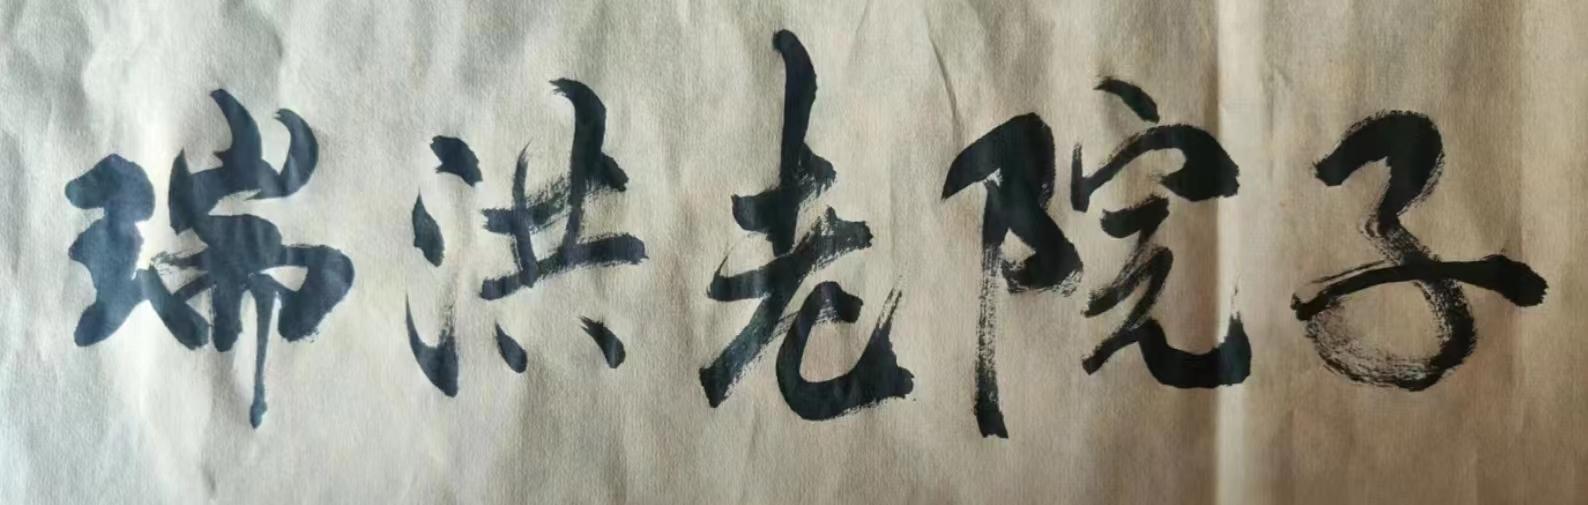 瑞洪老院子